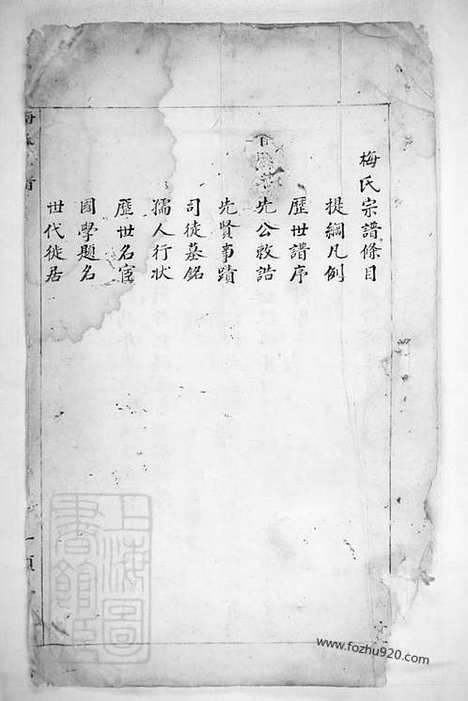 梅氏宗譜條目
提綱凡例
歷世譜序
先公敕誥
先賢事蹟
司徒墓銘
孺人行狀
歷世名宦
國學題名
世代徙居
上海圖書館
www.fozhu920.com